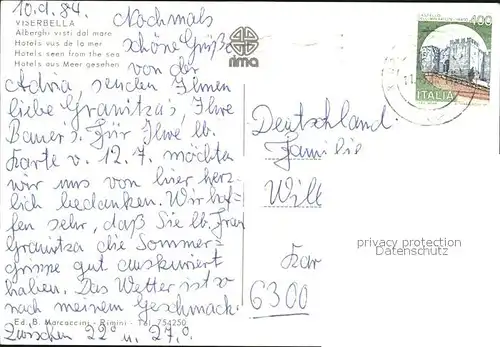 10.9.84.
VISERBELLA
Alberghi visti dal mare
Hotels vus de la mer
Hotels seen from the sea
Hotels aus Meer gesehen
rima
Nochmals
schöne Grüße
von der
Adria, senden Ihnen
liebe Granitza's, Ihre
Bauer's. Für Ihre lb.
Karte v. 12.7. möchten
wir uns von hier herz-
lich bedanken. Wir hof-
fen sehr, daß Sie lb. Frau
Granitza die Sommer-
grippe gut auskuriert
haben. Das Wetter ist so
nach meinem Geschmack
Zwischen 22° u. 27.°
Ed. B. Marcaccini - Rimini - Tel. 754250
400
ITALIA
Deutschland
Familie
Will
Kar
6300
privacy protection
Datenschutz